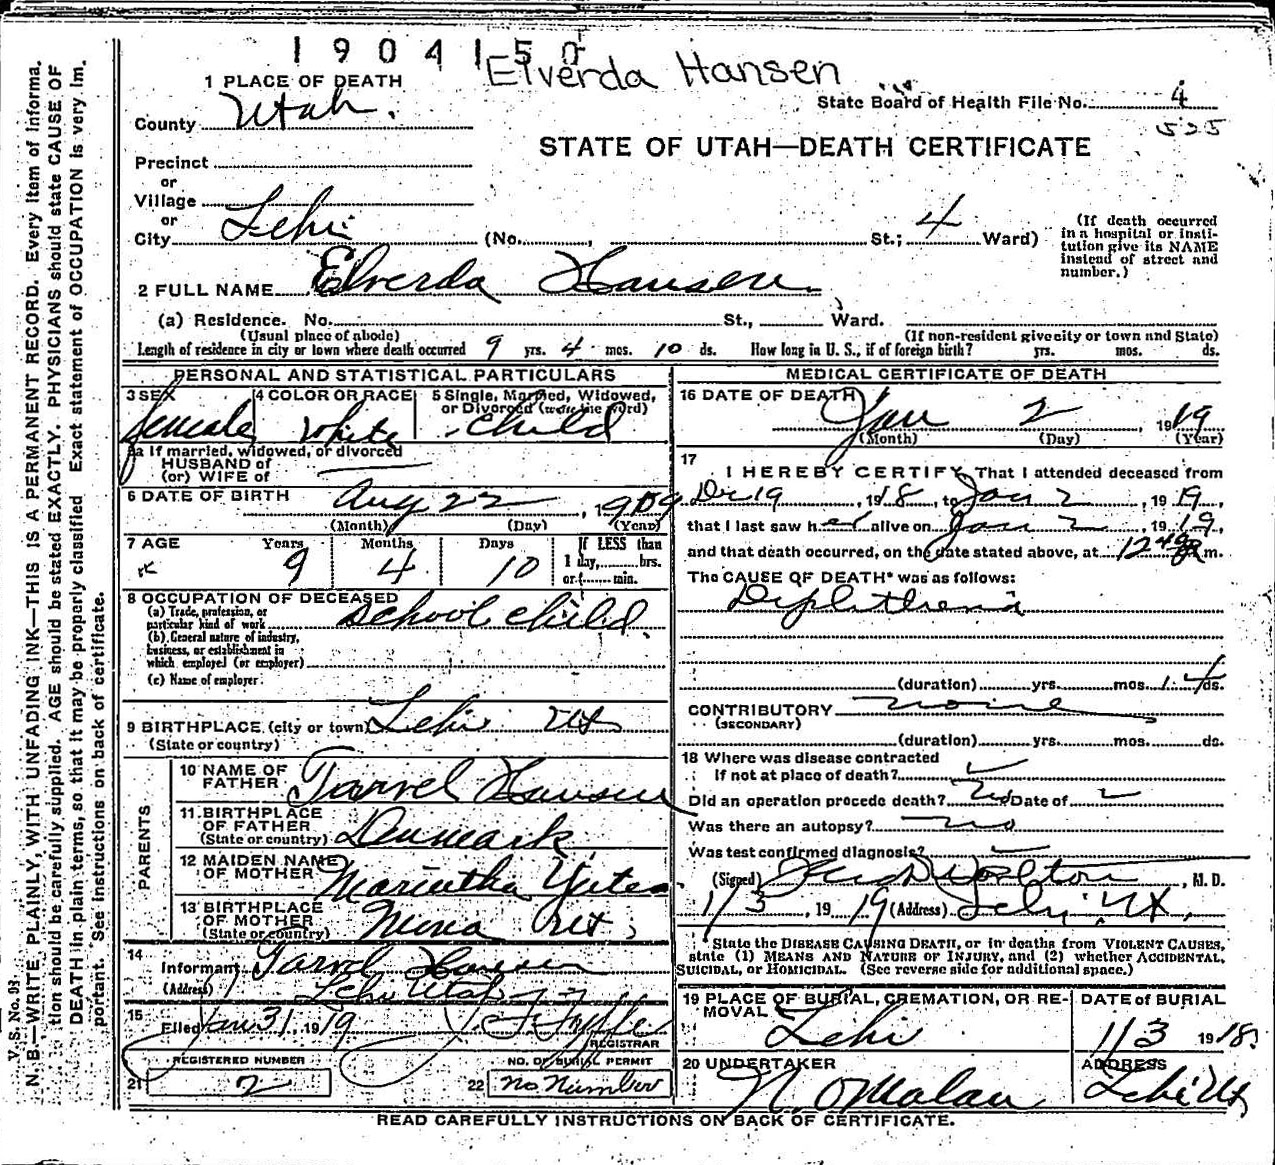 1904150
Elverda Hansen
1 PLACE OF DEATH
State Board of Health File No. 4
525
County Utah.
STATE OF UTAH—DEATH CERTIFICATE
Precinct
or
Village
or
City Lehi (No. , St.; 4 Ward)
(If death occurred in a hospital or insti-
tution give its NAME instead of street and number.)
2 FULL NAME Elverda Hansen
(a) Residence. No. St., Ward.
(Usual place of abode) (If non-resident give city or town and State)
Length of residence in city or town where death occurred 9 yrs. 4 mos. 10 ds. How long in U. S., if of foreign birth? yrs. mos. ds.
PERSONAL AND STATISTICAL PARTICULARS
3 SEX female
4 COLOR OR RACE white
5 Single, Married, Widowed, or Divorced (write the word) child
5a If married, widowed, or divorced
HUSBAND of
(or) WIFE of
6 DATE OF BIRTH Aug 22, 1909
(Month) (Day) (Year)
7 AGE Years 9 Months 4 Days 10 If LESS than 1 day, hrs. or min.
8 OCCUPATION OF DECEASED
(a) Trade, profession, or particular kind of work School child.
(b) General nature of industry, business, or establishment in which employed (or employer)
(c) Name of employer.
9 BIRTHPLACE (city or town) Lehi Ut
(State or country)
PARENTS
10 NAME OF FATHER Tarvel Hansen
11 BIRTHPLACE OF FATHER (State or country) Denmark
12 MAIDEN NAME OF MOTHER Marintha Yates
13 BIRTHPLACE OF MOTHER (State or country) Ut
14 Informant Tarvel Hansen
(Address) Lehi Utah
15 Filed Jan 31, 1919
REGISTRAR
REGISTERED NUMBER
21 2
NO. OF BURIAL PERMIT
22 no number
MEDICAL CERTIFICATE OF DEATH
16 DATE OF DEATH Jan 2 1919
(Month) (Day) (Year)
17 I HEREBY CERTIFY, That I attended deceased from
Dec 19, 1918, to Jan 2, 1919,
that I last saw her alive on Jan 2, 1919,
and that death occurred, on the date stated above, at m.
The CAUSE OF DEATH* was as follows:
Diphtheria
(duration) yrs. mos. 14 ds.
CONTRIBUTORY none
(SECONDARY)
(duration) yrs. mos. ds.
18 Where was disease contracted
If not at place of death?
Did an operation precede death? No Date of
Was there an autopsy? no
Was test confirmed diagnosis?
(Signed) , M. D.
1/3, 1919 (Address) Lehi, Ut,
*State the DISEASE CAUSING DEATH, or in deaths from VIOLENT CAUSES,
state (1) MEANS AND NATURE OF INJURY, and (2) whether ACCIDENTAL,
SUICIDAL, or HOMICIDAL. (See reverse side for additional space.)
19 PLACE OF BURIAL, CREMATION, OR RE-
MOVAL Lehi
DATE of BURIAL
1/3 1918
20 UNDERTAKER
N. O Malan
ADDRESS
Lehi Ut
READ CAREFULLY INSTRUCTIONS ON BACK OF CERTIFICATE.
V. S. No. 98
N. B.—WRITE PLAINLY, WITH UNFADING INK—THIS IS A PERMANENT RECORD. Every item of informa-
tion should be carefully supplied. AGE should be stated EXACTLY. PHYSICIANS should state CAUSE OF
DEATH in plain terms, so that it may be properly classified. Exact statement of OCCUPATION is very im-
portant. See instructions on back of certificate.